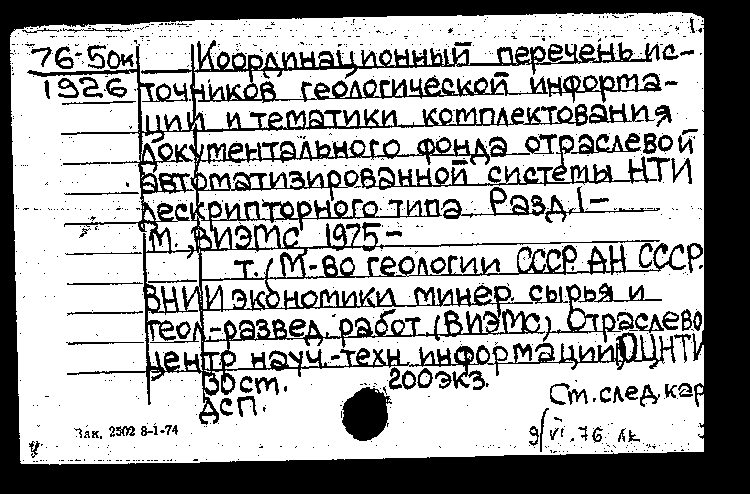 76-50и Координационный перечень ис-
1926 точников геологической информа-
ции и тематики комплектования
документального фонда отраслевой
автоматизированной системы НТИ
дескрипторного типа. Разд. I-
М., ВИЭМС, 1975.-
т. (М-во геологии СССР. АН СССР.
ВНИИ экономики минер. сырья и
геол.-развед. работ. (ВИЭМС). Отраслево
центр науч.-техн. информации, ОЦНТИ
30 ст. 200 экз.
ДСП.
Ст. след. кар
Зак. 2502 8-1-74
9/VI.76 лк